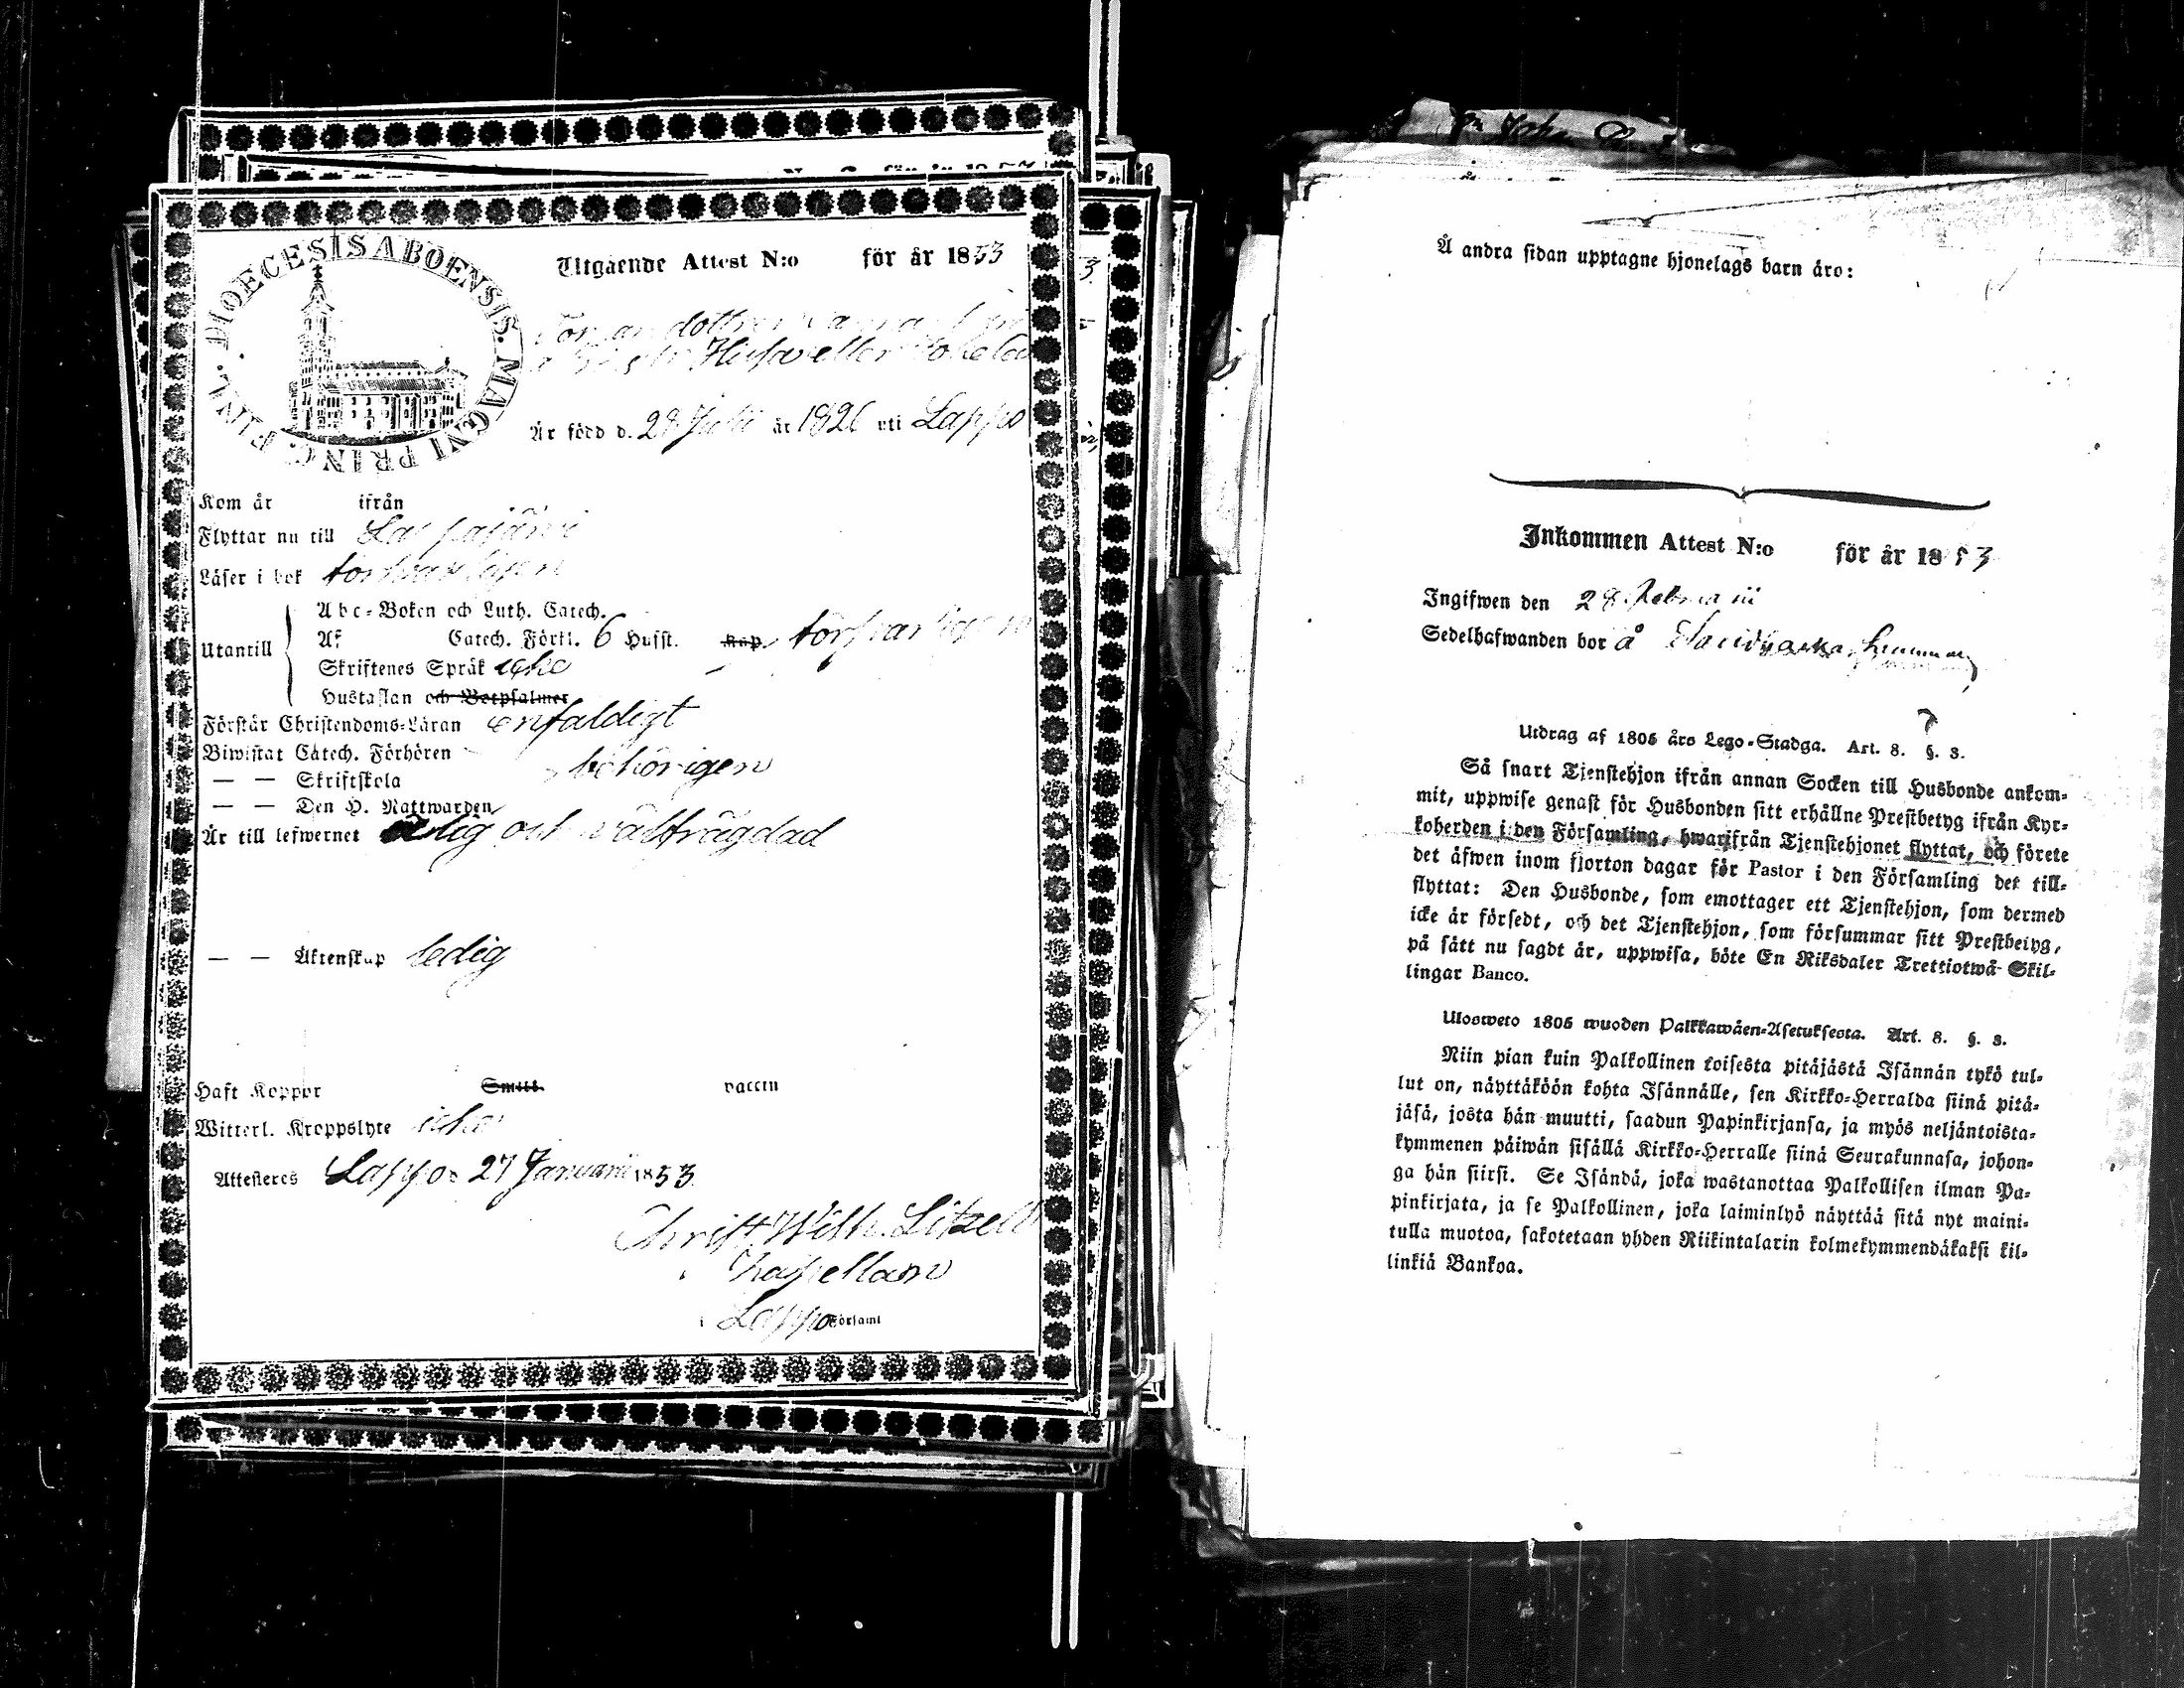 DIOECESIS ABOENSIS. MAGNI PRINC. FINL.
Utgående Attest N:o för år 1853
dottren
Huso eller
Är född d. 28 Julii år 1826 uti Lappo
Kom år ifrån
Flyttar nu till Lappajärvi
Läser i bok försvarligen
Utantill
Abc-Boken och Luth. Catech.
Af Catech. Förkl. 6 Hufst. Kap. försvarligen
Skriftenes Språk icke
Hustaflan och Botpsalmer
Förstår Christendoms-Läran enfaldigt
Biwistat Catech. Förhören
— — Skriftskola behörigen
— — Den H. Nattwarden
Är till lefwernet ärlig och välfrägdad
— — Äktenskap ledig
Haft Koppor Smitt. vaccin
Witterl. Kroppslyte icke
Attesteras Lappo d 27 Januarii 1853.
Christ Wilh. Litzell
Kapellan
i Lappo Församl
Å andra sidan upptagne hjonelags barn äro:
Inkommen Attest N:o för år 1853
Ingifwen den 28 Februarii
Sedelhafwanden bor å
Utdrag af 1805 års Lego-Stadga. Art. 8. §. 3.
Så snart Tjenstehjon ifrån annan Socken till Husbonde ankom-
mit, uppwise genast för Husbonden sitt erhållne Prestbetyg ifrån Kyr-
koherden i den Församling, hwarifrån Tjenstehjonet flyttat, och förete
det äfwen inom fjorton dagar för Pastor i den Församling det till-
flyttat: Den Husbonde, som emottager ett Tjenstehjon, som dermed
icke är försedt, och det Tjenstehjon, som försummar sitt Prestbetyg,
på sätt nu sagdt är, uppwisa, böte En Riksdaler Trettiotwå Skil-
lingar Banco.
Ulosweto 1805 wuoden Palkkawäen-Asetuksesta. Art. 8. §. 3.
Niin pian kuin Palkollinen toisesta pitäjästä Isännän tykö tul-
lut on, näyttäköön kohta Isännälle, sen Kirkko-Herralda siinä pitä-
jäsä, josta hän muutti, saadun Papinkirjansa, ja myös neljäntoista-
kymmenen päiwän sisällä Kirkko-Herralle siinä Seurakunnasa, johon-
ga hän siirsi. Se Isändä, joka wastanottaa Palkollisen ilman Pa-
pinkirjata, ja se Palkollinen, joka laiminlyö näyttää sitä nyt maini-
tulla muotoa, sakotetaan yhden Riikintalarin kolmekymmendäkaksi kil-
linkiä Bankoa.